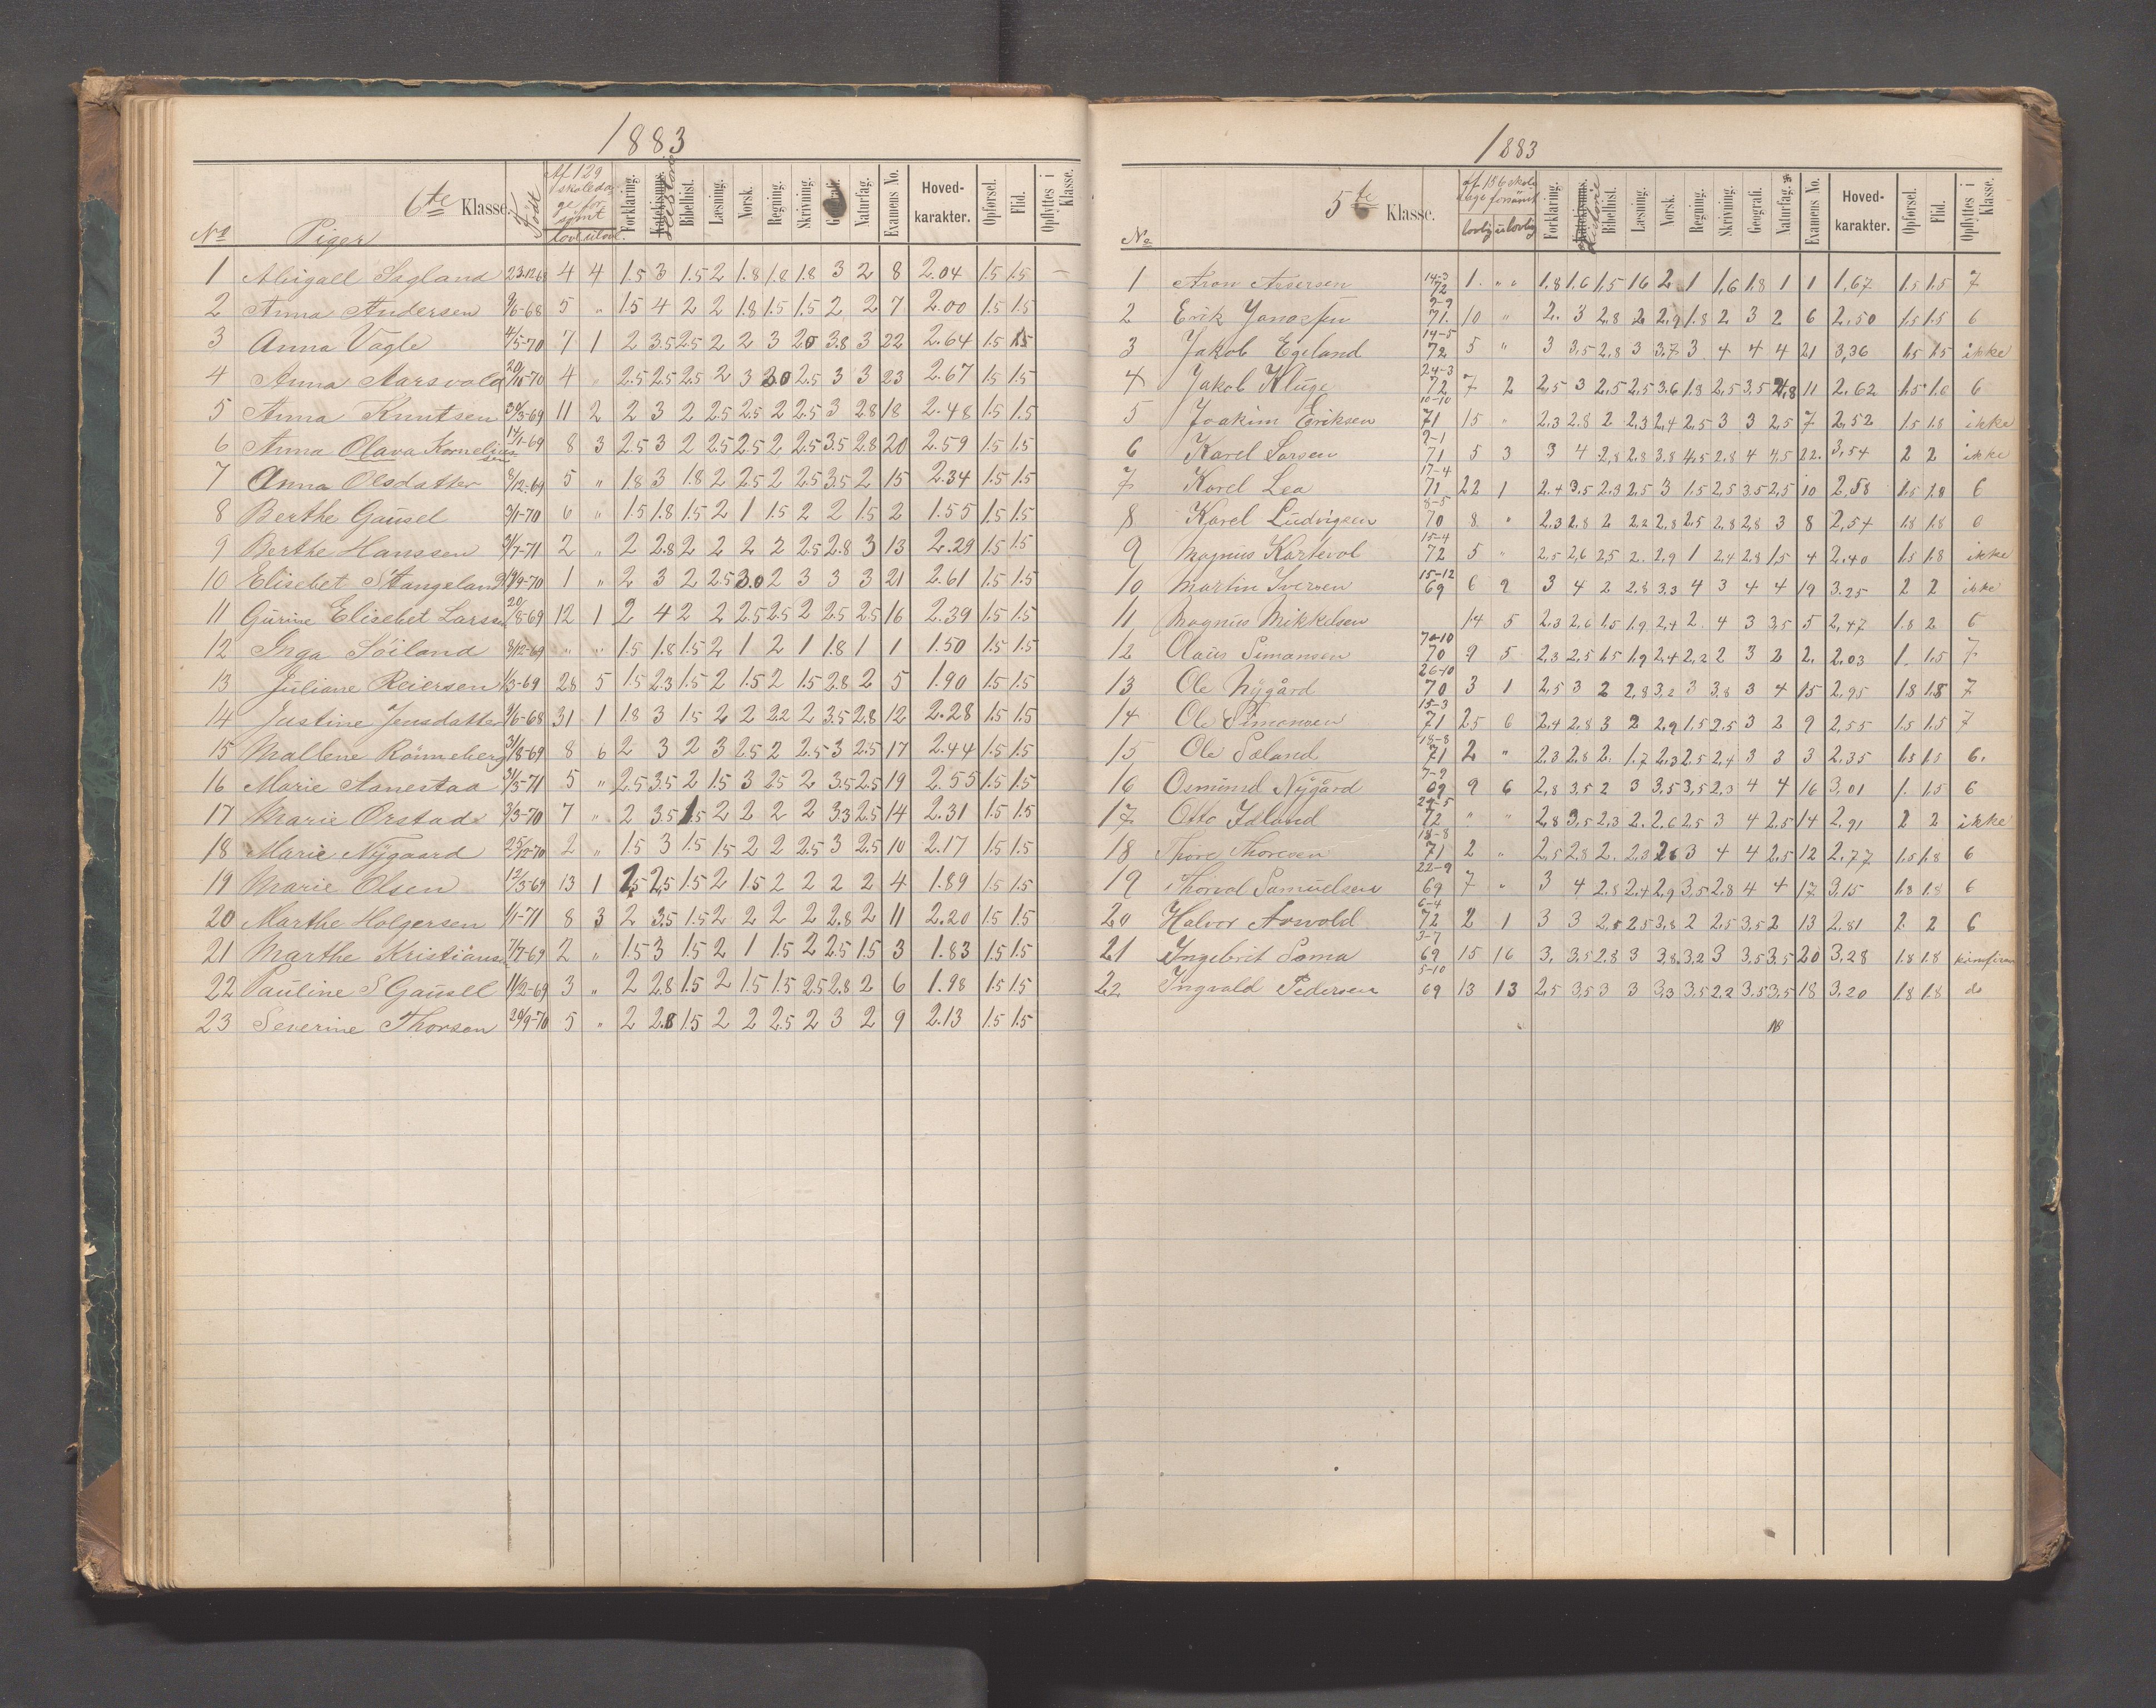 1883
6te Klasse.
Født
Af 129 skoledage forsømt
lovl. ulovl.
Forklaring. Katekismus. Historie Bibelhist. Læsning. Norsk. Regning. Skrivning. Geografi. Naturfag. Examens No. Hoved-karakter. Opførsel. Flid. Opflyttes i Klasse.
No Piger
1 Abigael Sagland 23-12-68 4 4 1.5 3 1.5 2 1.8 1.8 1.8 3 2 8 2.04 1.5 1.5 —
2 Anna Andersen 9/6-68 5 " 1.5 4 2 2 1.8 1.5 1.5 2 2 7 2.00 1.5 1.5
3 Anna Vagle 4/5-70 7 1 2 3.5 2.5 2 2 3 2.0 3.8 3 22 2.64 1.5 1.5
4 Anna Aarsvold 20/10-70 4 " 2.5 2.5 2.5 2 3 3.0 2.5 3 3 23 2.67 1.5 1.5
5 Anna Knutsen 30/3-69 11 2 2 3 2 2.5 2.5 2 2.5 3 2.8 18 2.48 1.5 1.5
6 Anna Olava Kornelius sen 14/1-69 8 3 2.5 3 2 2.5 2.5 2 2.5 3.5 2.8 20 2.59 1.5 1.5
7 Anna Olsdatter 8/12-69 5 " 1.8 3 1.8 2 2.5 2 2.5 3.5 2 15 2.34 1.5 1.5
8 Berthe Gausel 3/1-70 6 " 1.5 1.8 1.5 2 1 1.5 2 2 1.5 2 1.55 1.5 1.5
9 Berthe Hanssen 3/7-71 2 " 2 2.8 2 2 2 2 2.5 2.8 3 13 2.29 1.5 1.5
10 Elisebet Stangeland 19/9-70 1 " 2 3 2 2.5 3.0 2 3 3 3 21 2.61 1.5 1.5
11 Gurine Elisebet Larsen 20/8-69 12 1 2 4 2 2 2.5 2.5 2 2.5 2.5 16 2.39 1.5 1.5
12 Inga Soiland 3/12-69 " " 1.5 1.8 1.5 2 1 2 1 1.8 1 1 1.50 1.5 1.5
13 Juliane Reiersen 1/3-69 28 5 1.5 2.3 1.5 2 1.5 2 1.5 2.8 2 5 1.90 1.5 1.5
14 Justine Jensdatter 9/6-68 31 1 1.8 3 1.5 2 2 2.2 2 3.5 2.8 12 2.28 1.5 1.5
15 Mallene Rönneberg 31/8-69 8 6 2 3 2 3 2.5 2 2.5 3 2.5 17 2.44 1.5 1.5
16 Marie Aanestaa 31/5-71 5 " 2.5 3.5 2 1.5 3 2.5 2 3.5 2.5 19 2.55 1.5 1.5
17 Marie Orstad 3/3-70 7 " 2 3.5 1.5 2 2 2 2 3.3 2.5 14 2.31 1.5 1.5
18 Marie Nygaard 25/12-70 2 " 1.5 3 1.5 1.5 2 2 2.5 3 2.5 10 2.17 1.5 1.5
19 Marie Olsen 12/3-69 13 1 1.5 2.5 1.5 2 1.5 2 2 2 2 4 1.89 1.5 1.5
20 Marthe Holgersen 1/1-71 8 3 2 3.5 1.5 2 2 2 2 2.8 2 11 2.20 1.5 1.5
21 Marthe Kristiansen 7/7-69 2 " 1.5 3 1.5 2 1 1.5 2 2.5 1.5 3 1.83 1.5 1.5
22 Pauline S Gausel 11/2-69 3 " 2 2.8 1.5 2 1.5 1.5 2.5 2.8 2 6 1.98 1.5 1.5
23 Severine Thorsen 29/9-70 5 " 2 2.8 1.5 2 2 2.5 2 3 2 9 2.13 1.5 1.5
1883
5te Klasse.
af 136 skoledage forsømt
lovlig ulovlig
Forklaring. Katekismus. Historie Bibelhist. Læsning. Norsk. Regning. Skrivning. Geografi. Naturfag. Examens No. Hoved-karakter. Opførsel. Flid. Opflyttes i Klasse.
No
1 Aron Assersen 14-3 72 1. " " 1,8 1,6 1,5 1,6 2 1 1,6 1,8 1 1 1,67 1.5 1.5 7
2 Erik Jonassen 9-9 71. 10 " 2. 3 2,8 2 2,9 1.8 2 3 2 6 2,50 1.5 1.5 6
3 Jakob Egeland 14-5 72 5 " 3 3,5 2,8 3 3.7 3 4 4 4 21 3,36 1.5 1.5 ikke
4 Jakob Kluge 24-3 72 7 2 2,5 3 2,5 2,5 3,6 1.8 2,5 3,5 2,8 11 2,62 1.5 1.6 6
5 Joakim Eriksen 10-10 71 15 " 2,3 2.8 2 2,3 2,4 2,5 3 3 2,5 7 2,52 1.5 1.8 ikke
6 Karel Larsen 2-1 71 5 3 3 4 2,8 2.8 3.8 4,5 2.8 4 4,5 22. 3,54 2 2 ikke
7 Karel Lea 17-4 71 22 1 2.4 3.5 2.3 2,5 3 1.5 2,5 3.5 2,5 10 2,58 1.5 1.8 6
8 Karel Ludvigsen 8-5 70 8 " 2.3 2.8 2 2.2 2,8 2,5 2,8 2,8 3 8 2,54 1.8 1.8 6
9 Magnus Kartevol 15-4 72 5 " 2.5 2,6 2,5 2. 2.9 1 2,4 2.8 1,5 4 2.40 1.5 1.8 ikke
10 Martin Iversen 15-12 69 6 2 3 4 2 2.8 3.3 4 3 4 4 19 3.25 2 2 ikke
11 Magnus Mikkelsen 14 5 2.3 2.6 1.5 1.9 2,4 2. 4 3 3,5 5 2,47 1.8 2 6
12 Olaus Simonsen 70-10 70 9 5 2.3 2.5 1.5 1.9 2.4 2,2 2 3 2 2. 2.03 1. 1.5 7
13 Ole Nygård 26-10 70 3 1 2,5 3 2 2,8 3,2 3 3,8 3 4 15 2,95 1.8 1.8 7
14 Ole Simonsen 15-3 71 25 6 2,4 2.8 3 2 2,9 1.5 2.5 3 2 9 2,55 1.5 1.5 7
15 Ole Sæland 18-8 71 2 " 2.3 2.8 2. 1.7 2,3 2.5 2,4 3 3 3 2.35 1.5 1.5 6.
16 Osmund Nygård 7-9 69 9 6 2,8 3,5 2 3 3,5 3,5 2,3 4 4 16 3,01 1. 1.5 6
17 Otto Idland 24-5 72 " " 2,8 3,5 2,3 2. 2.6 2,5 3 4 2.5 14 2.91 2 2 ikke
18 Thore Thoresen 18-8 71 2 " 2,5 2.8 2. 2,3 2.6 3 4 4 2,5 12 2.77 1.5 1.8 6
19 Thorvol Samuelsen 22-9 69 7 " 3 4 2.8 2,4 2,9 3,5 2.8 4 4 17 3,15 1.8 1.8 6
20 Halvor Asvold 6-4 72 2 1 3 3 2,5 2.5 3,8 2 2,5 3,5 2 13 2.81 2. 2 6
21 Ingebrit Soma 3-7 69 15 16 3, 3,5 2.8 3 3,8 3,2 3 3,5 3.5 20 3,28 1.8 1.8 konfirm
22 Ingvald Pedersen 5-10 69 13 13 2,5 3,5 3 3 3,3 3,5 2.2 3.5 3,5 18 3,20 1.8 1.8 do